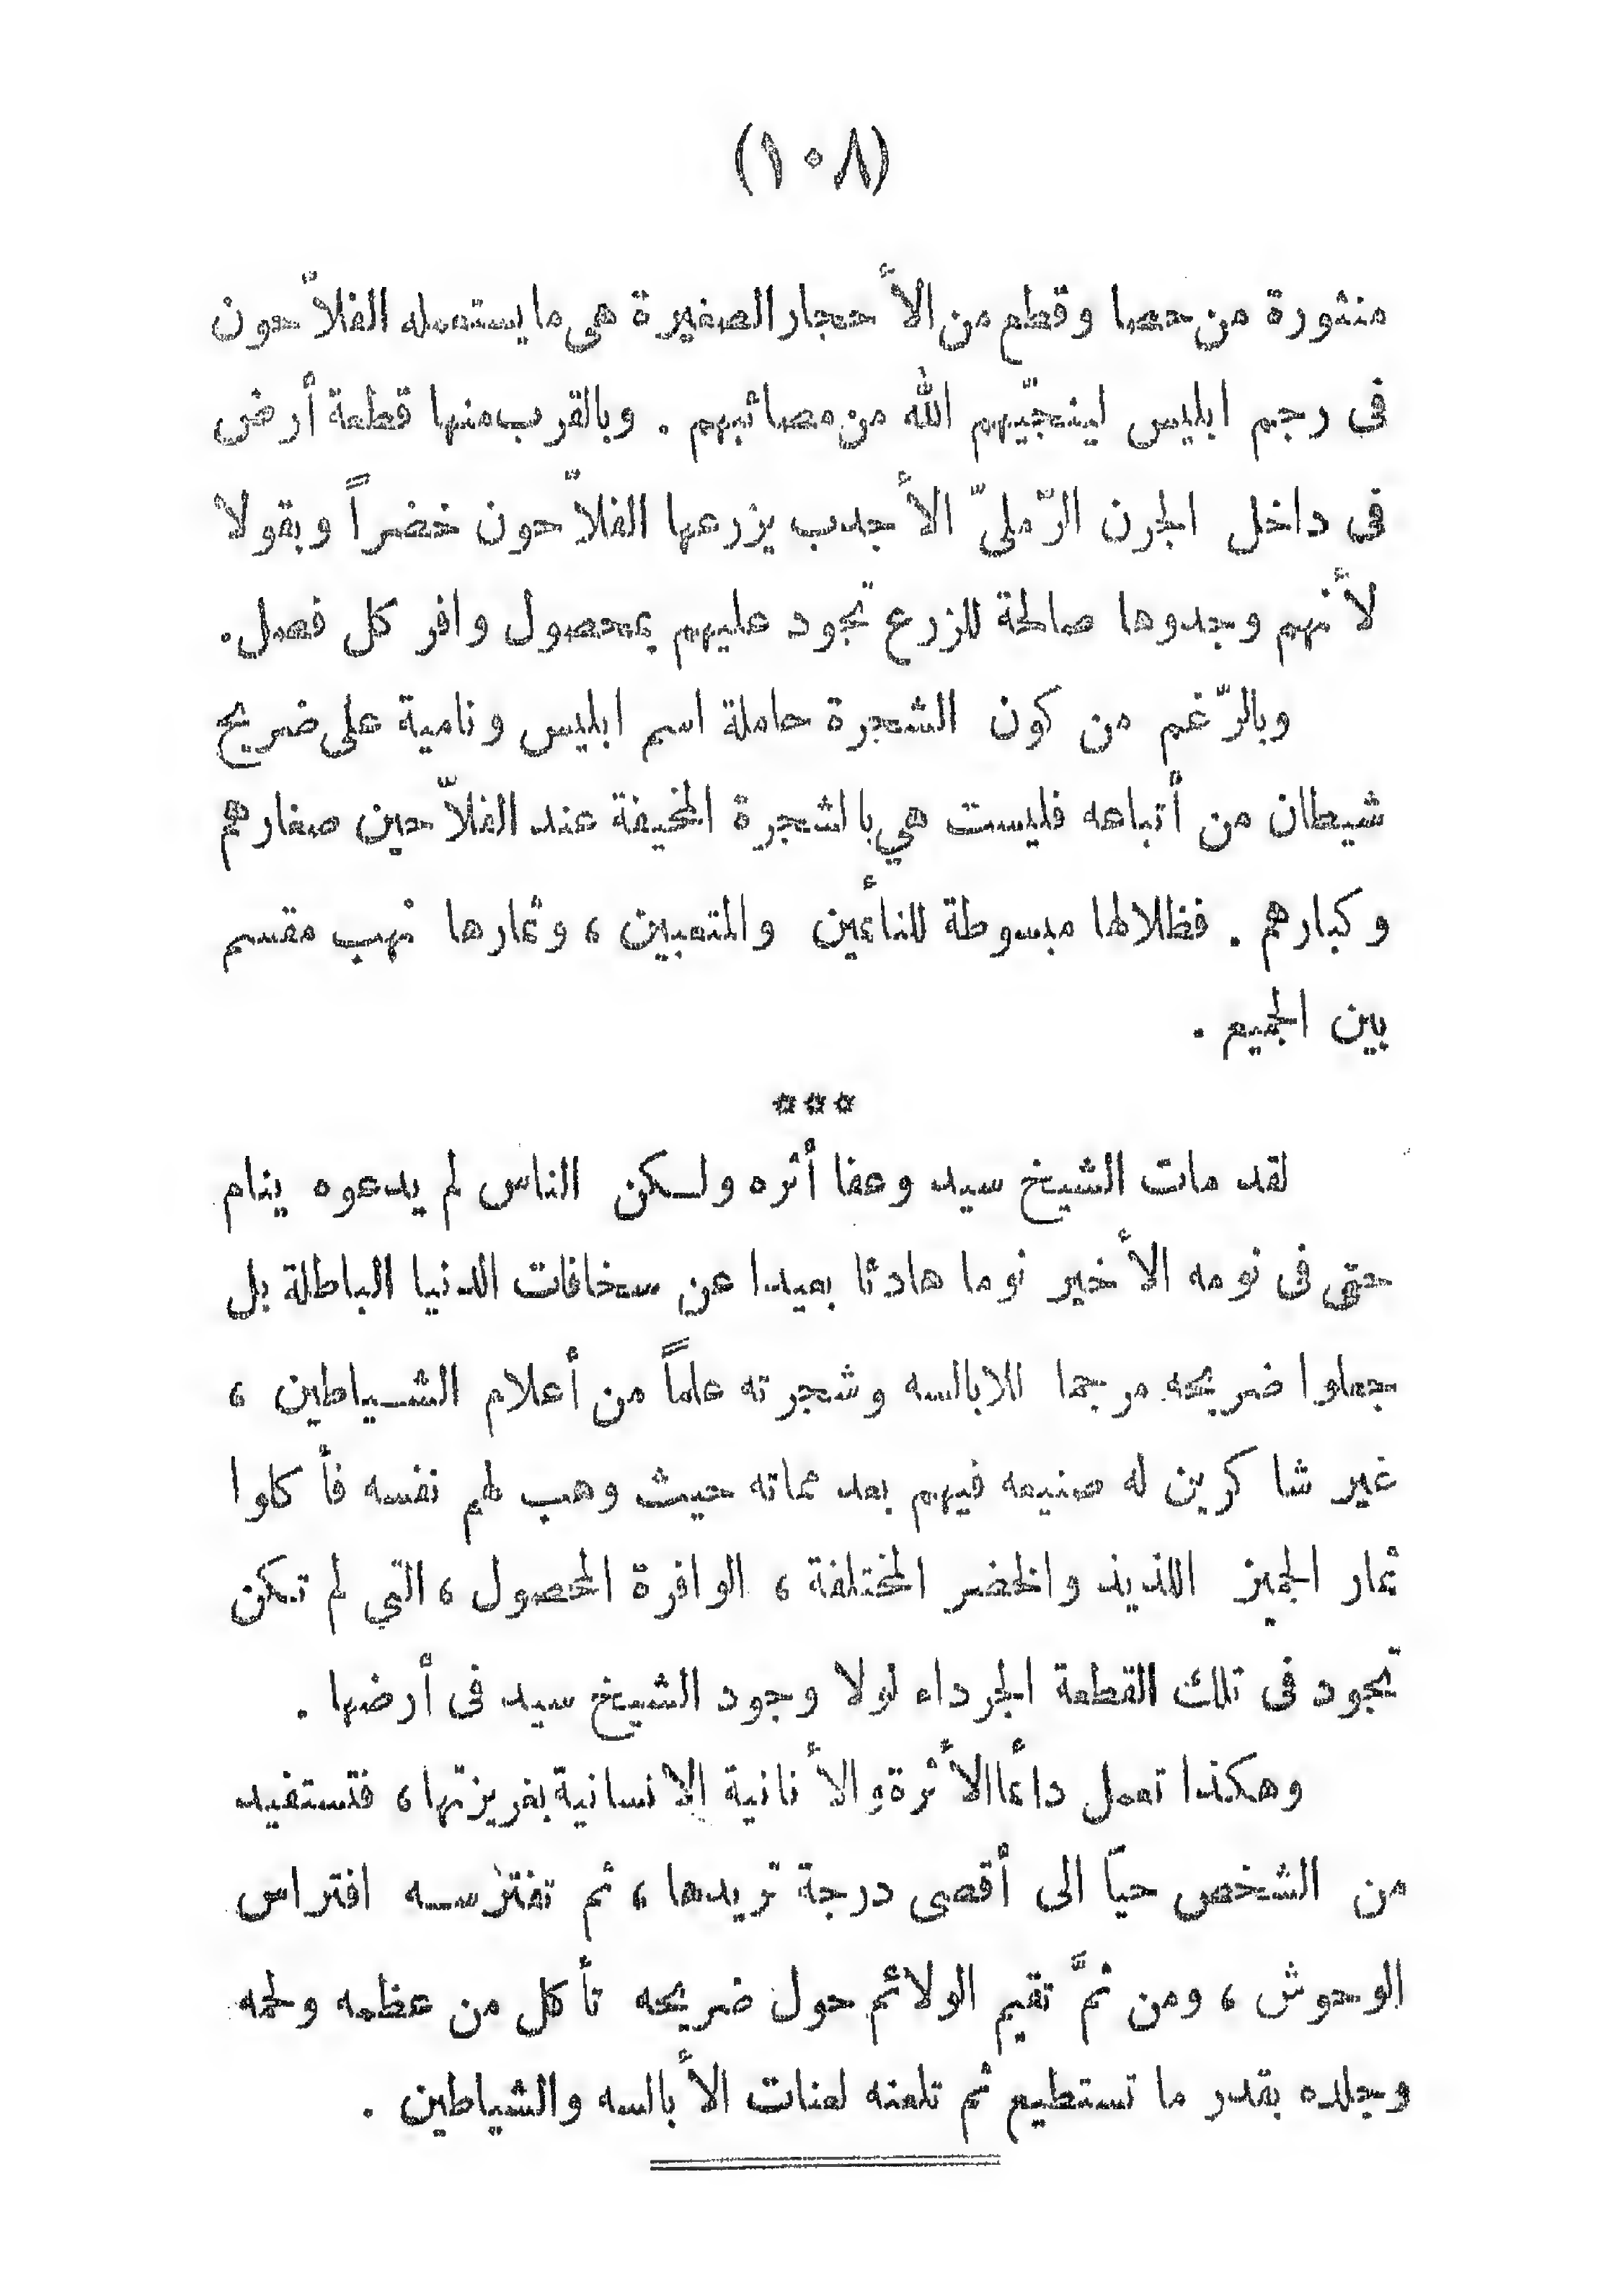 (١٠٨)
منثورة من حصا وقطع من الأحجار الصغيرة هى ما يستعمله الفلاّحون
فى رجم ابليس لينجّيهم الله من مصائبهم . وبالقرب منها قطعة أرض
فى داخل الجرن الرّمليّ الأجدب يزرعها الفلاّحون خضراً وبقولا
لأنهم وجدوها صالحة للزرع تجود عليهم بمحصول وافر كل فصل.
وبالرّغم من كون الشجرة حاملة اسم ابليس ونامية على ضريح
شيطان من أتباعه فليست هي بالشجرة المخيفة عند الفلاّحين صغارهم
وكبارهم . فظلالها مبسوطة للنائمين والمتعبين ، وثمارها نهب مقسم
بين الجميع .
***
لقد مات الشيخ سيد وعفا أثره ولكن الناس لم يدعوه ينام
حتى فى نومه الأخير نوما هادئا بعيدا عن سخافات الدنيا الباطلة بل
جعلوا ضريحه مرجما للابالسه وشجرته علماً من أعلام الشياطين ،
غير شاكرين له صنيعه فيهم بعد مماته حيث وهب لهم نفسه فأكلوا
ثمار الجميز اللذيذ والخضر المختلفة ، الوافرة المحصول ، التي لم تكن
تجود فى تلك القطعة الجرداء لولا وجود الشيخ سيد فى أرضها .
وهكذا تعمل دائما الأثرة والأنانية الانسانية بغريزتها ، فتستفيد
من الشخص حيّا الى أقصى درجة تريدها ، ثم تفترسه افتراس
الوحوش ، ومن ثمَّ تقيم الولائم حول ضريحه تأكل من عظمه ولحمه
وجلده بقدر ما تستطيع ثم تلعنه لعنات الأبالسه والشياطين .